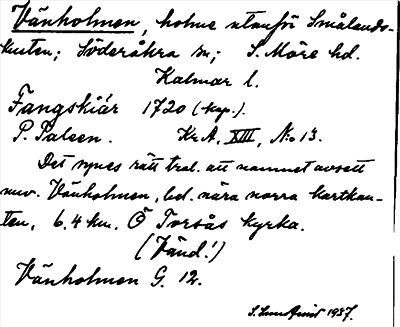 Vänholmen, holme utanför Smålands-
kusten; Söderåkra sn; S. Möre hd.
Kalmar l.
Fangskiär 1720 (kop.).
P. Palsen. Kr.A. XIII, No 13.
Det synes rätt trol. att namnet avsett
nuv. Vänholmen, bel. nära norra kartkan-
ten, 6.4 km. Ö Torsås kyrka.
(Vänd!)
Vänholmen G. 12.
1937.